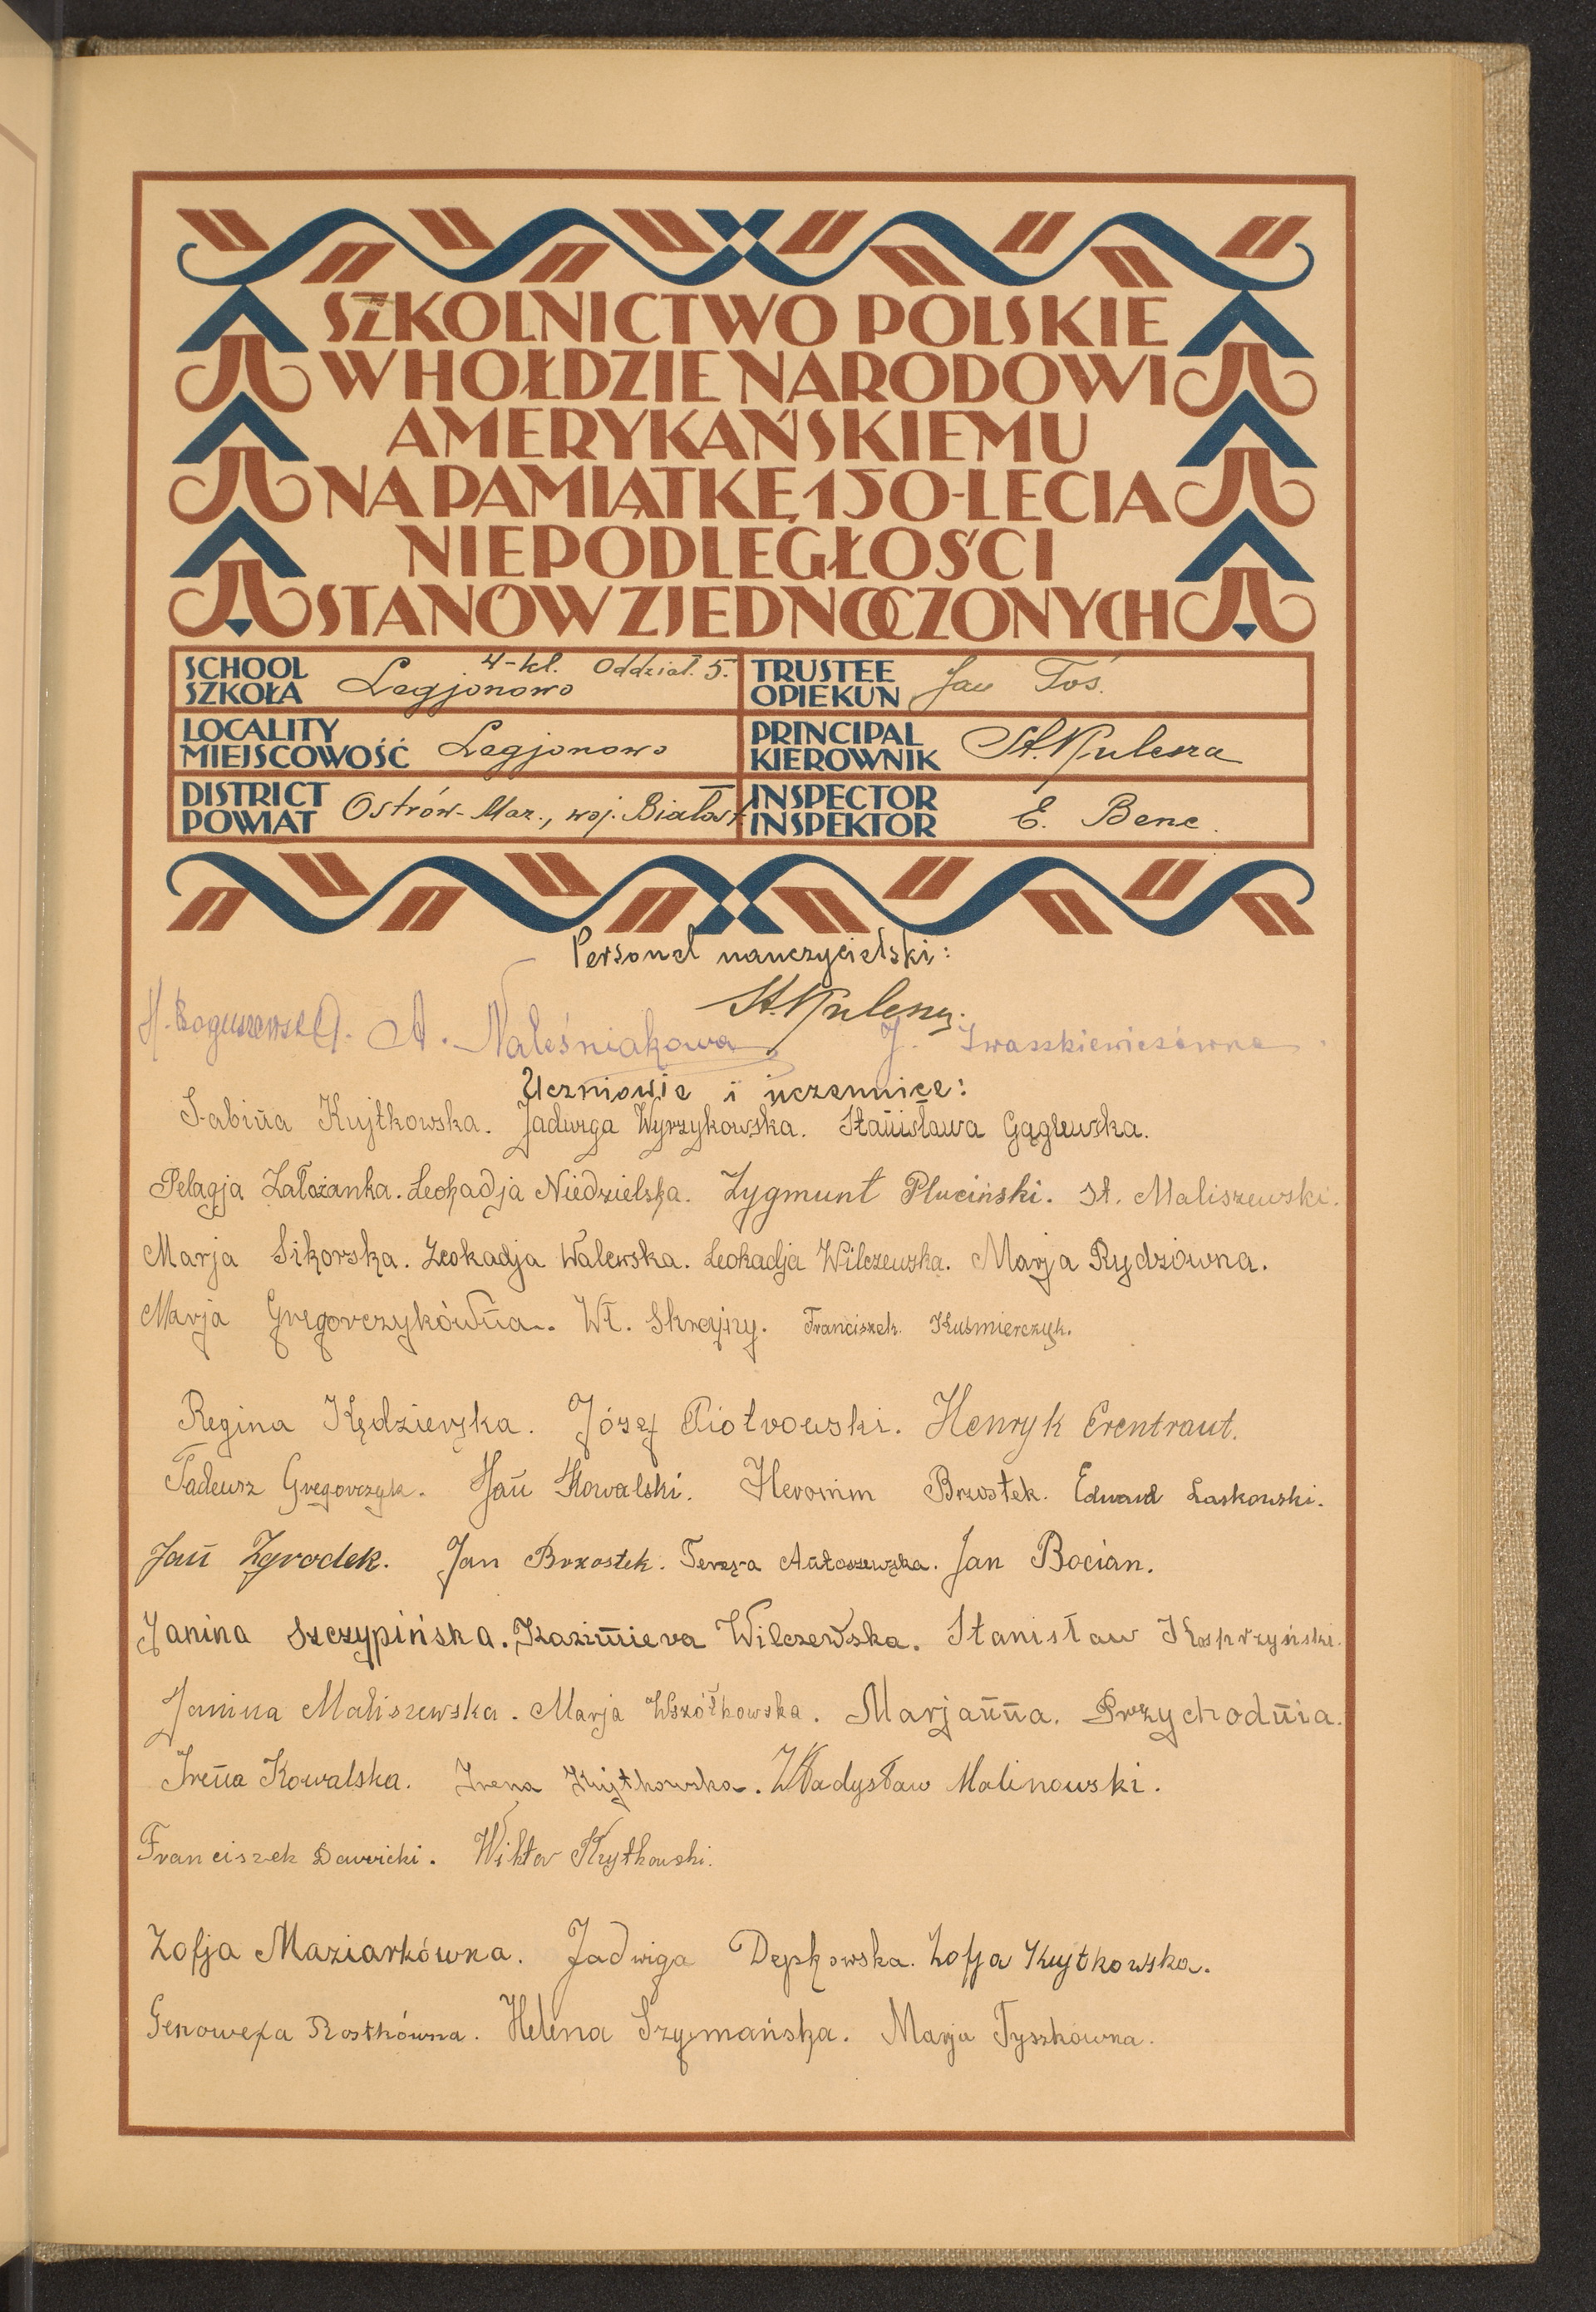 SZKOLNICTWO POLSKIE
W HOŁDZIE NARODOWI
AMERYKAŃSKIEMU
NA PAMIĄTKĘ 150-LECIA
NIEPODLEGŁOŚCI
STANÓW ZJEDNOCZONYCH
SCHOOL
SZKOŁA
4-kl. Oddział. 5.
Legjonowo
TRUSTEE
OPIEKUN
Jan Toś.
LOCALITY
MIEJSCOWOŚĆ
Legjonowo
PRINCIPAL
KIEROWNIK
St. Kulesza
DISTRICT
POWIAT
Ostrów-Maz., woj. Białost.
INSPECTOR
INSPEKTOR
E. Benc.
Personel nauczycielski:
St. Kulesza.
H. Boguszewska. A. Naleśniakowa J. Iwaszkiewiczówna.
Uczniowie i uczennice:
Sabina Kujtkowska. Jadwiga Wyrzykowska. Stanisława Gąglewska.
Pelagja Załozanka. Leokadja Niedzielska. Zygmunt Pluciński. St. Maliszewski.
Marja Sikorska. Leokadja Walewska. Leokadja Wilczewska. Marja Rydzówna.
Marja Gregorczykówna. Wł. Skrajny. Franciszek Kuśmierczyk.
Regina Kędzierska. Józef Piotrowski. Henryk Erentraut.
Tadeusz Gregorczyk. Jan Kowalski. Heronim Brzostek. Edward Laskowski.
Jan Zgrodek. Jan Brzostek. Teresa Antoszewska. Jan Bocian.
Janina Szczypińska. Kazimiera Wilczewska. Stanisław Koskrzyński.
Janina Maliszewska. Marja Wszółkowska. Marjanna. Przychodnia.
Irena Kowalska. Irena Kujtkowska. Władysław Malinowski.
Franciszek Dawicki. Wiktor Krytkowski.
Zofja Maziarkówna. Jadwiga Depkowska. Zofja Kujtkowska.
Genowefa Rostkówna. Helena Szymańska. Marja Tyszkówna.